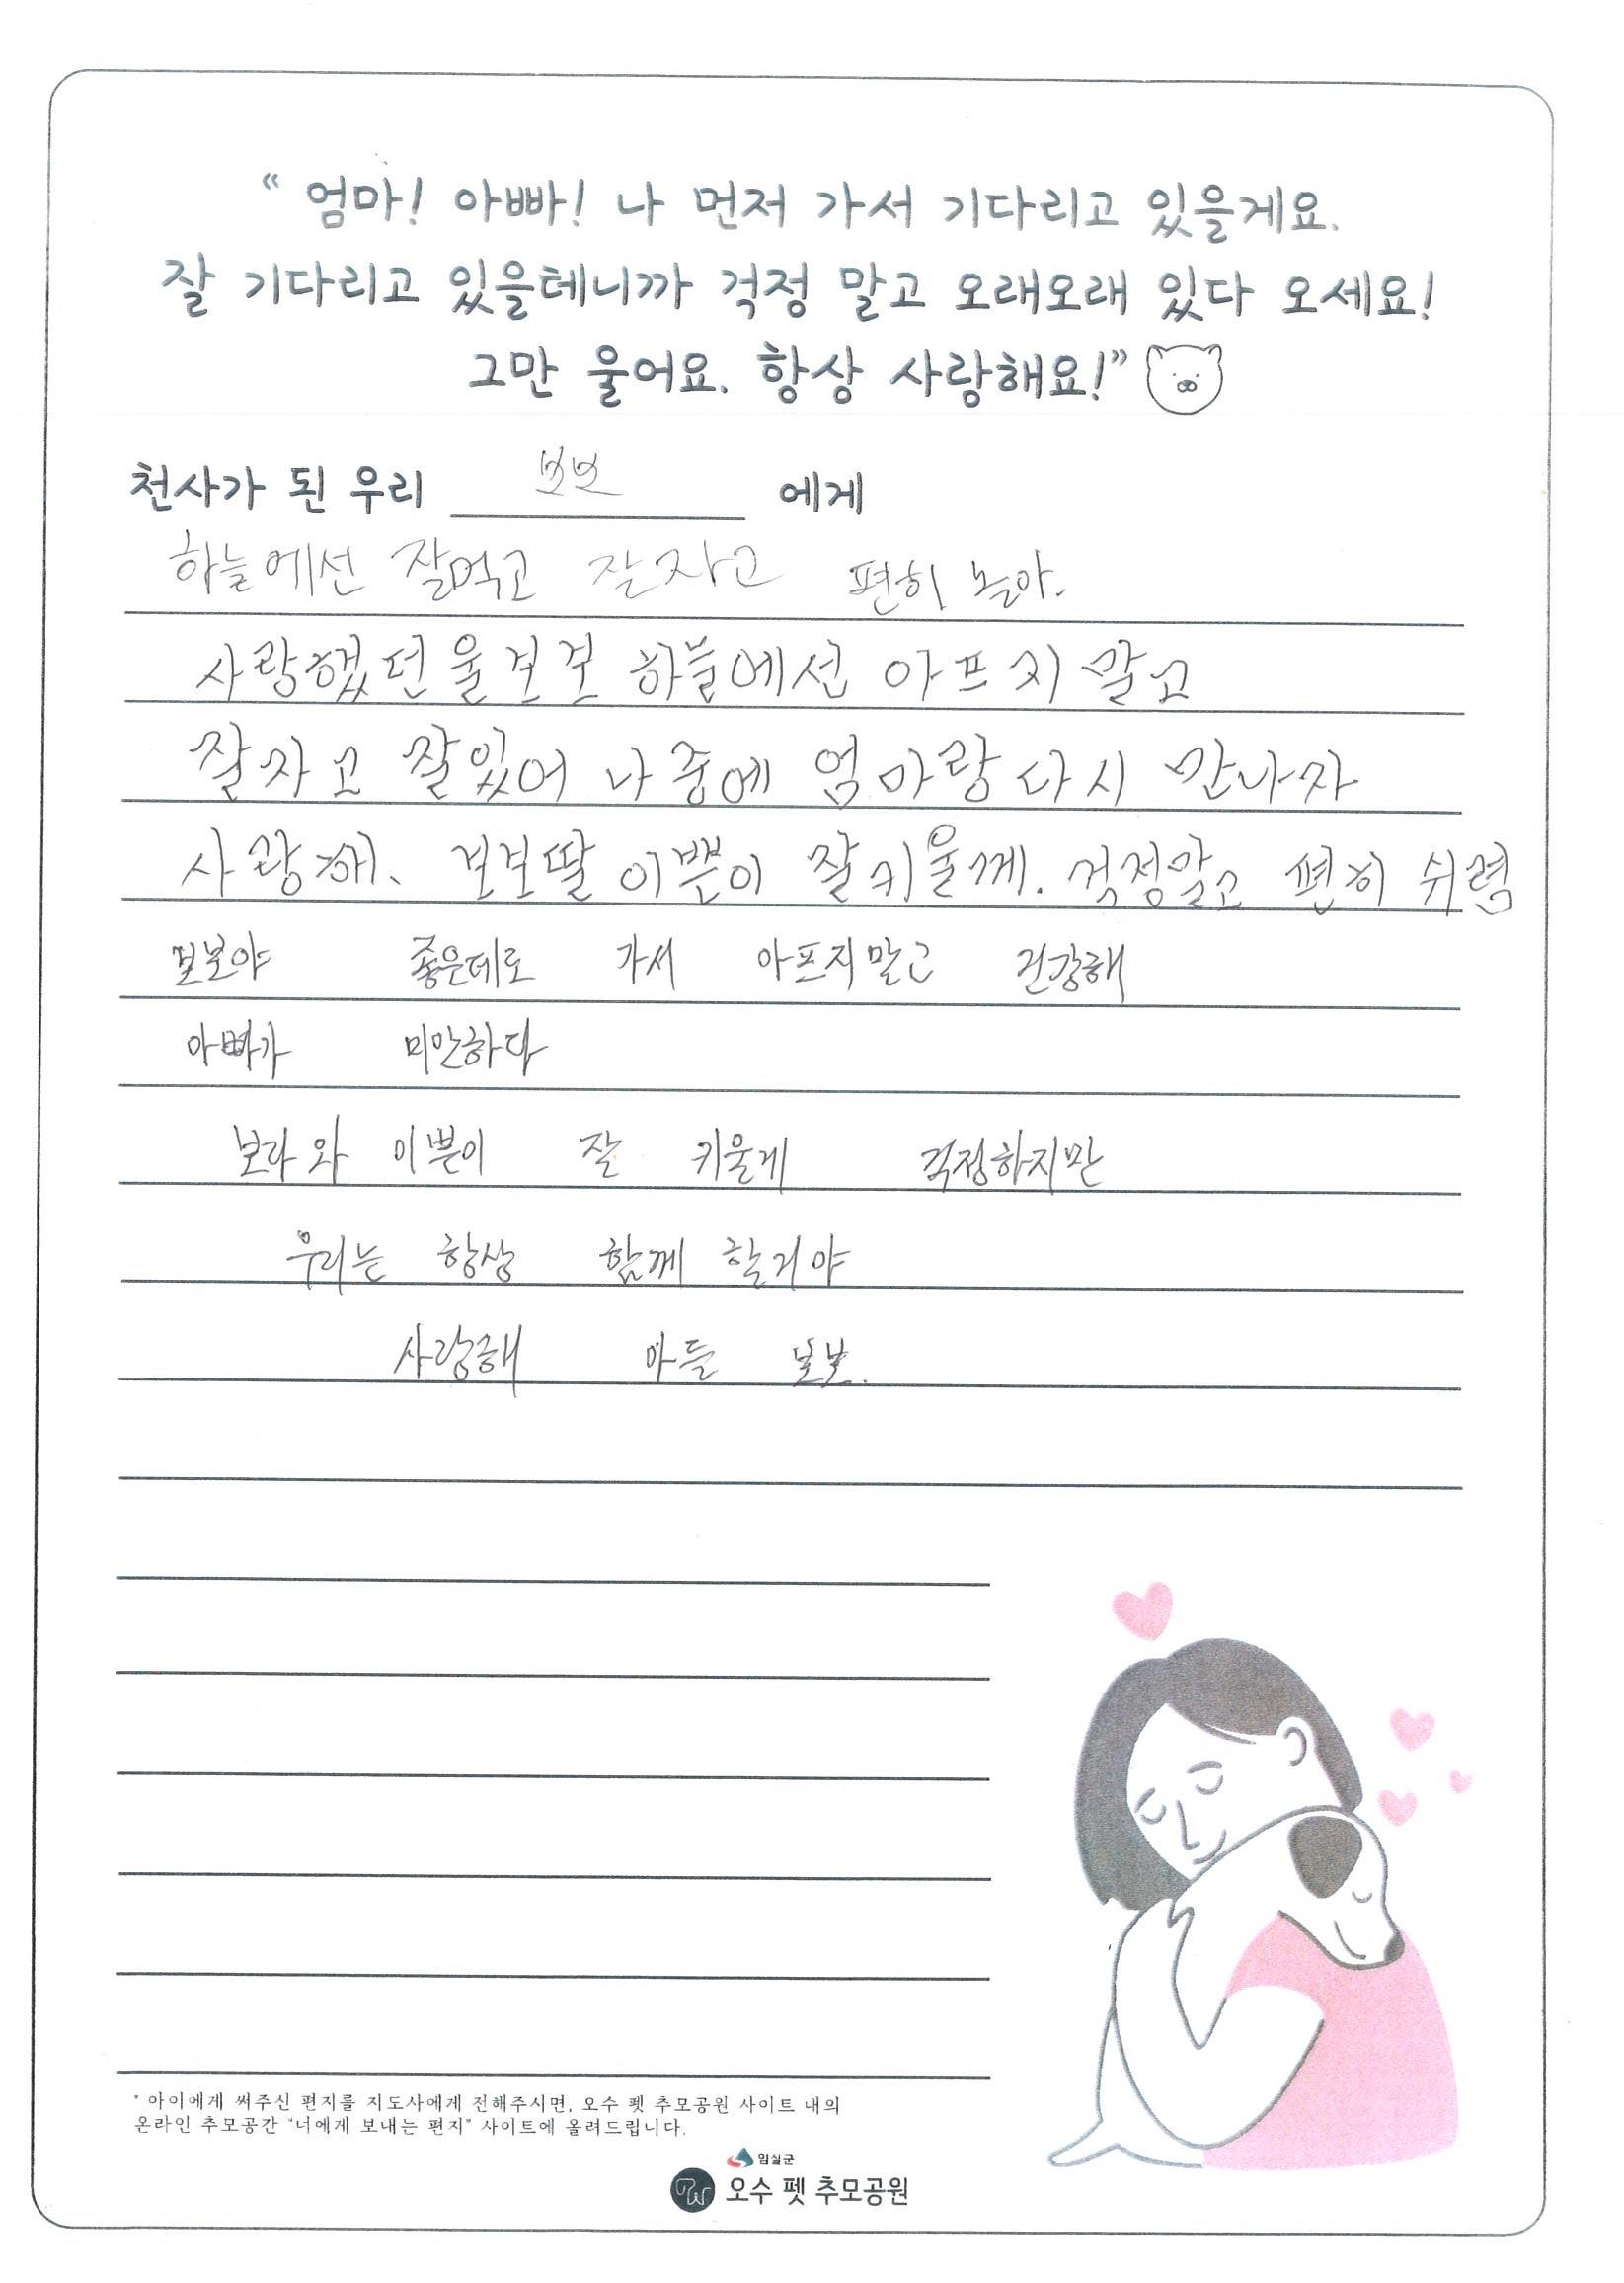 “ 엄마! 아빠! 나 먼저 가서 기다리고 있을게요.
잘 기다리고 있을테니까 걱정 말고 오래오래 있다 오세요!
그만 울어요. 항상 사랑해요!”
천사가 된 우리 보보 에게
하늘에선 잘먹고 잘자고 편히 놀아.
사랑했던울보보 하늘에선 아프지말고
잘자고 잘있어 나중에 엄마랑다시 만나자
사랑해、 보보딸이쁜이 잘키울께. 걱정말고 편히 쉬렴
보보야 좋은데로 가서 아프지말고 건강해
아빠가 미안하다
보라와 이쁜이 잘 키울게 걱정하지만
우리는 항상 함께 할거야
사랑해 아들 보보.
* 아이에게 써주신 편지를 지도사에게 전해주시면, 오수 펫 추모공원 사이트 내의
온라인 추모공간 “너에게 보내는 편지” 사이트에 올려드립니다.
임실군
오수 펫 추모공원